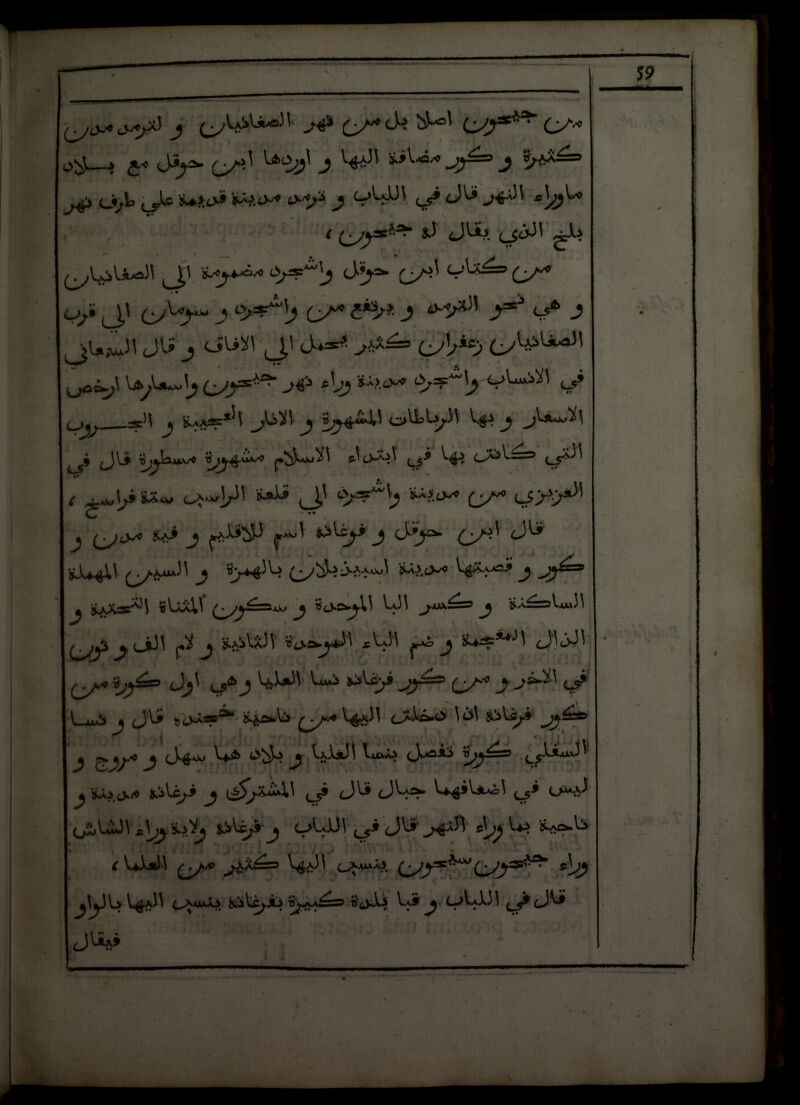 59
من جيحون اصلا بل من نهر الصغانيان و لترمذ مدن
كثيرة و كور مضافة اليها و اوردها ابن حوقل مع بلاد
ماوراء النهر قال في اللباب و ترمذ مدينة قديمة علي طرف نهر
بلخ الذي يقال له جيحون ؛
من كتاب ابن حوقل واشجرد مضمومة الي الصغانيان
و هي نحو الترمذ و يرتفع من واشجرد و سومان الي قرب
الصغانيان زعفران كثير يحمل الي الافاق و قال السمعاني
في الانساب واشجرد مدينة وراء نهر جيحون واسعارها ارخص
الاسعار و بها الرباطات المشهورة و الاثار العجيبة و الحروب
التي كانت بها في ابتداء الاسلام مشهورة مسطورة قال في
العزيزي من مدينة واشجرد الي قلعة الراسب ستة فراسخ ؛
قال ابن حوقل و فرغانة اسم للاقليم و فيه مدن و
كور و قصبتها مدينة بالهمزة و السين المهملة
الساكنة و كسر البا الموحدة و سكون المثناة التحتية و
الذال المعجمة و ضم الباء الموحدة الثانية و لام الف و نون
في الاخر و من كور فرغانة نسا العليا و هي اول كورة من
كور فرغانة اذا دخلت اليها من ناحية خجنده قال و نسا
السفلي كورة تتصل بنسا العليا و بلاد هما سهل و مروج و
ليس في اضعافهما جبال قال في المشترك و فرغانة مدينة و
ناحية بما وراء النهر قال في اللباب و فرغانة ولاية وراء الشاش
وراء جيحون سيحون ينسب اليها كثير من العلما ؛
قال في اللباب و قبا بلدة كبيرة بفرغانة ينسب اليها بالواو
فيقال